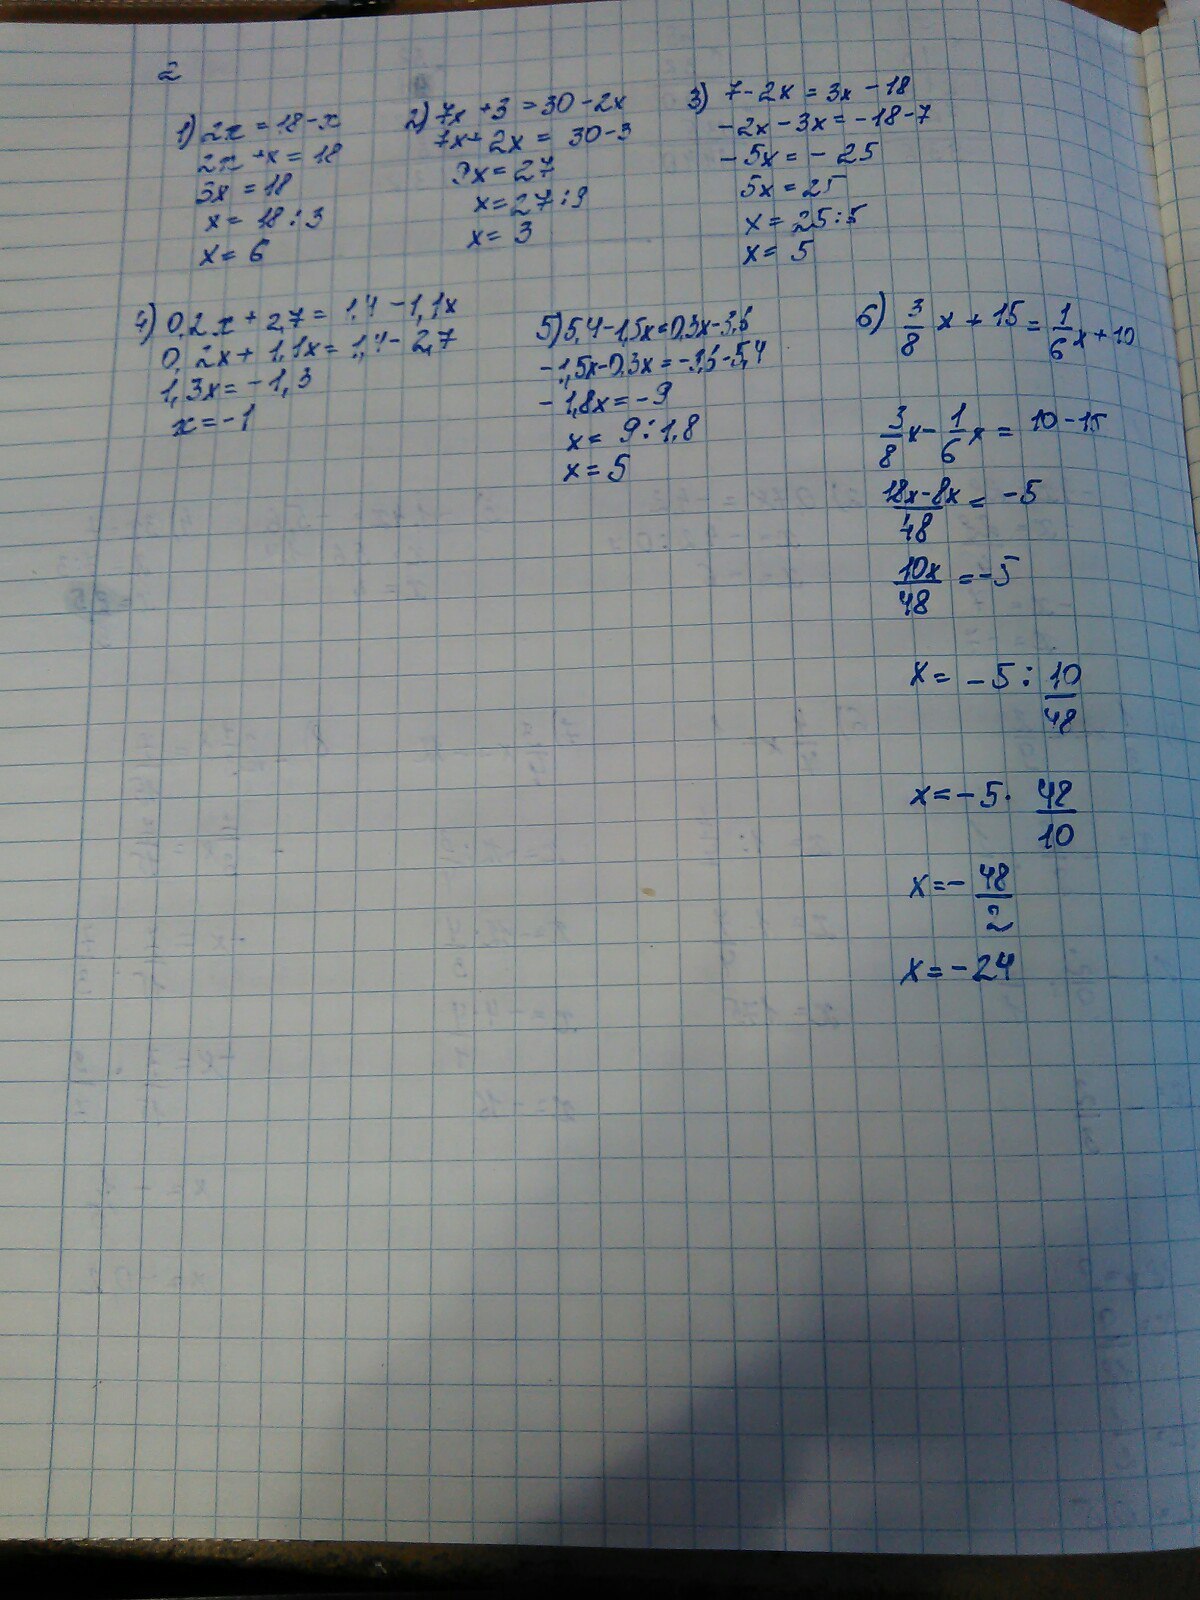 2
1) 2x = 18 - x
2x + x = 18
3x = 18
x = 18 : 3
x = 6
2) 7x + 3 = 30 - 2x
7x + 2x = 30 - 3
9x = 27
x = 27 : 9
x = 3
3) 7 - 2x = 3x - 18
-2x - 3x = -18 - 7
-5x = -25
5x = 25
x = 25 : 5
x = 5
4) 0,2x + 2,7 = 1,4 - 1,1x
0,2x + 1,1x = 1,4 - 2,7
1,3x = -1,3
x = -1
5) 5,4 - 1,5x = 0,3x - 3,6
-1,5x - 0,3x = -3,6 - 5,4
-1,8x = -9
x = 9 : 1,8
x = 5
6) 3/8 x + 15 = 1/6 x + 10
3/8 x - 1/6 x = 10 - 15
18x - 8x / 48 = -5
10x / 48 = -5
x = -5 : 10/48
x = -5 · 48/10
x = - 48/2
x = -24